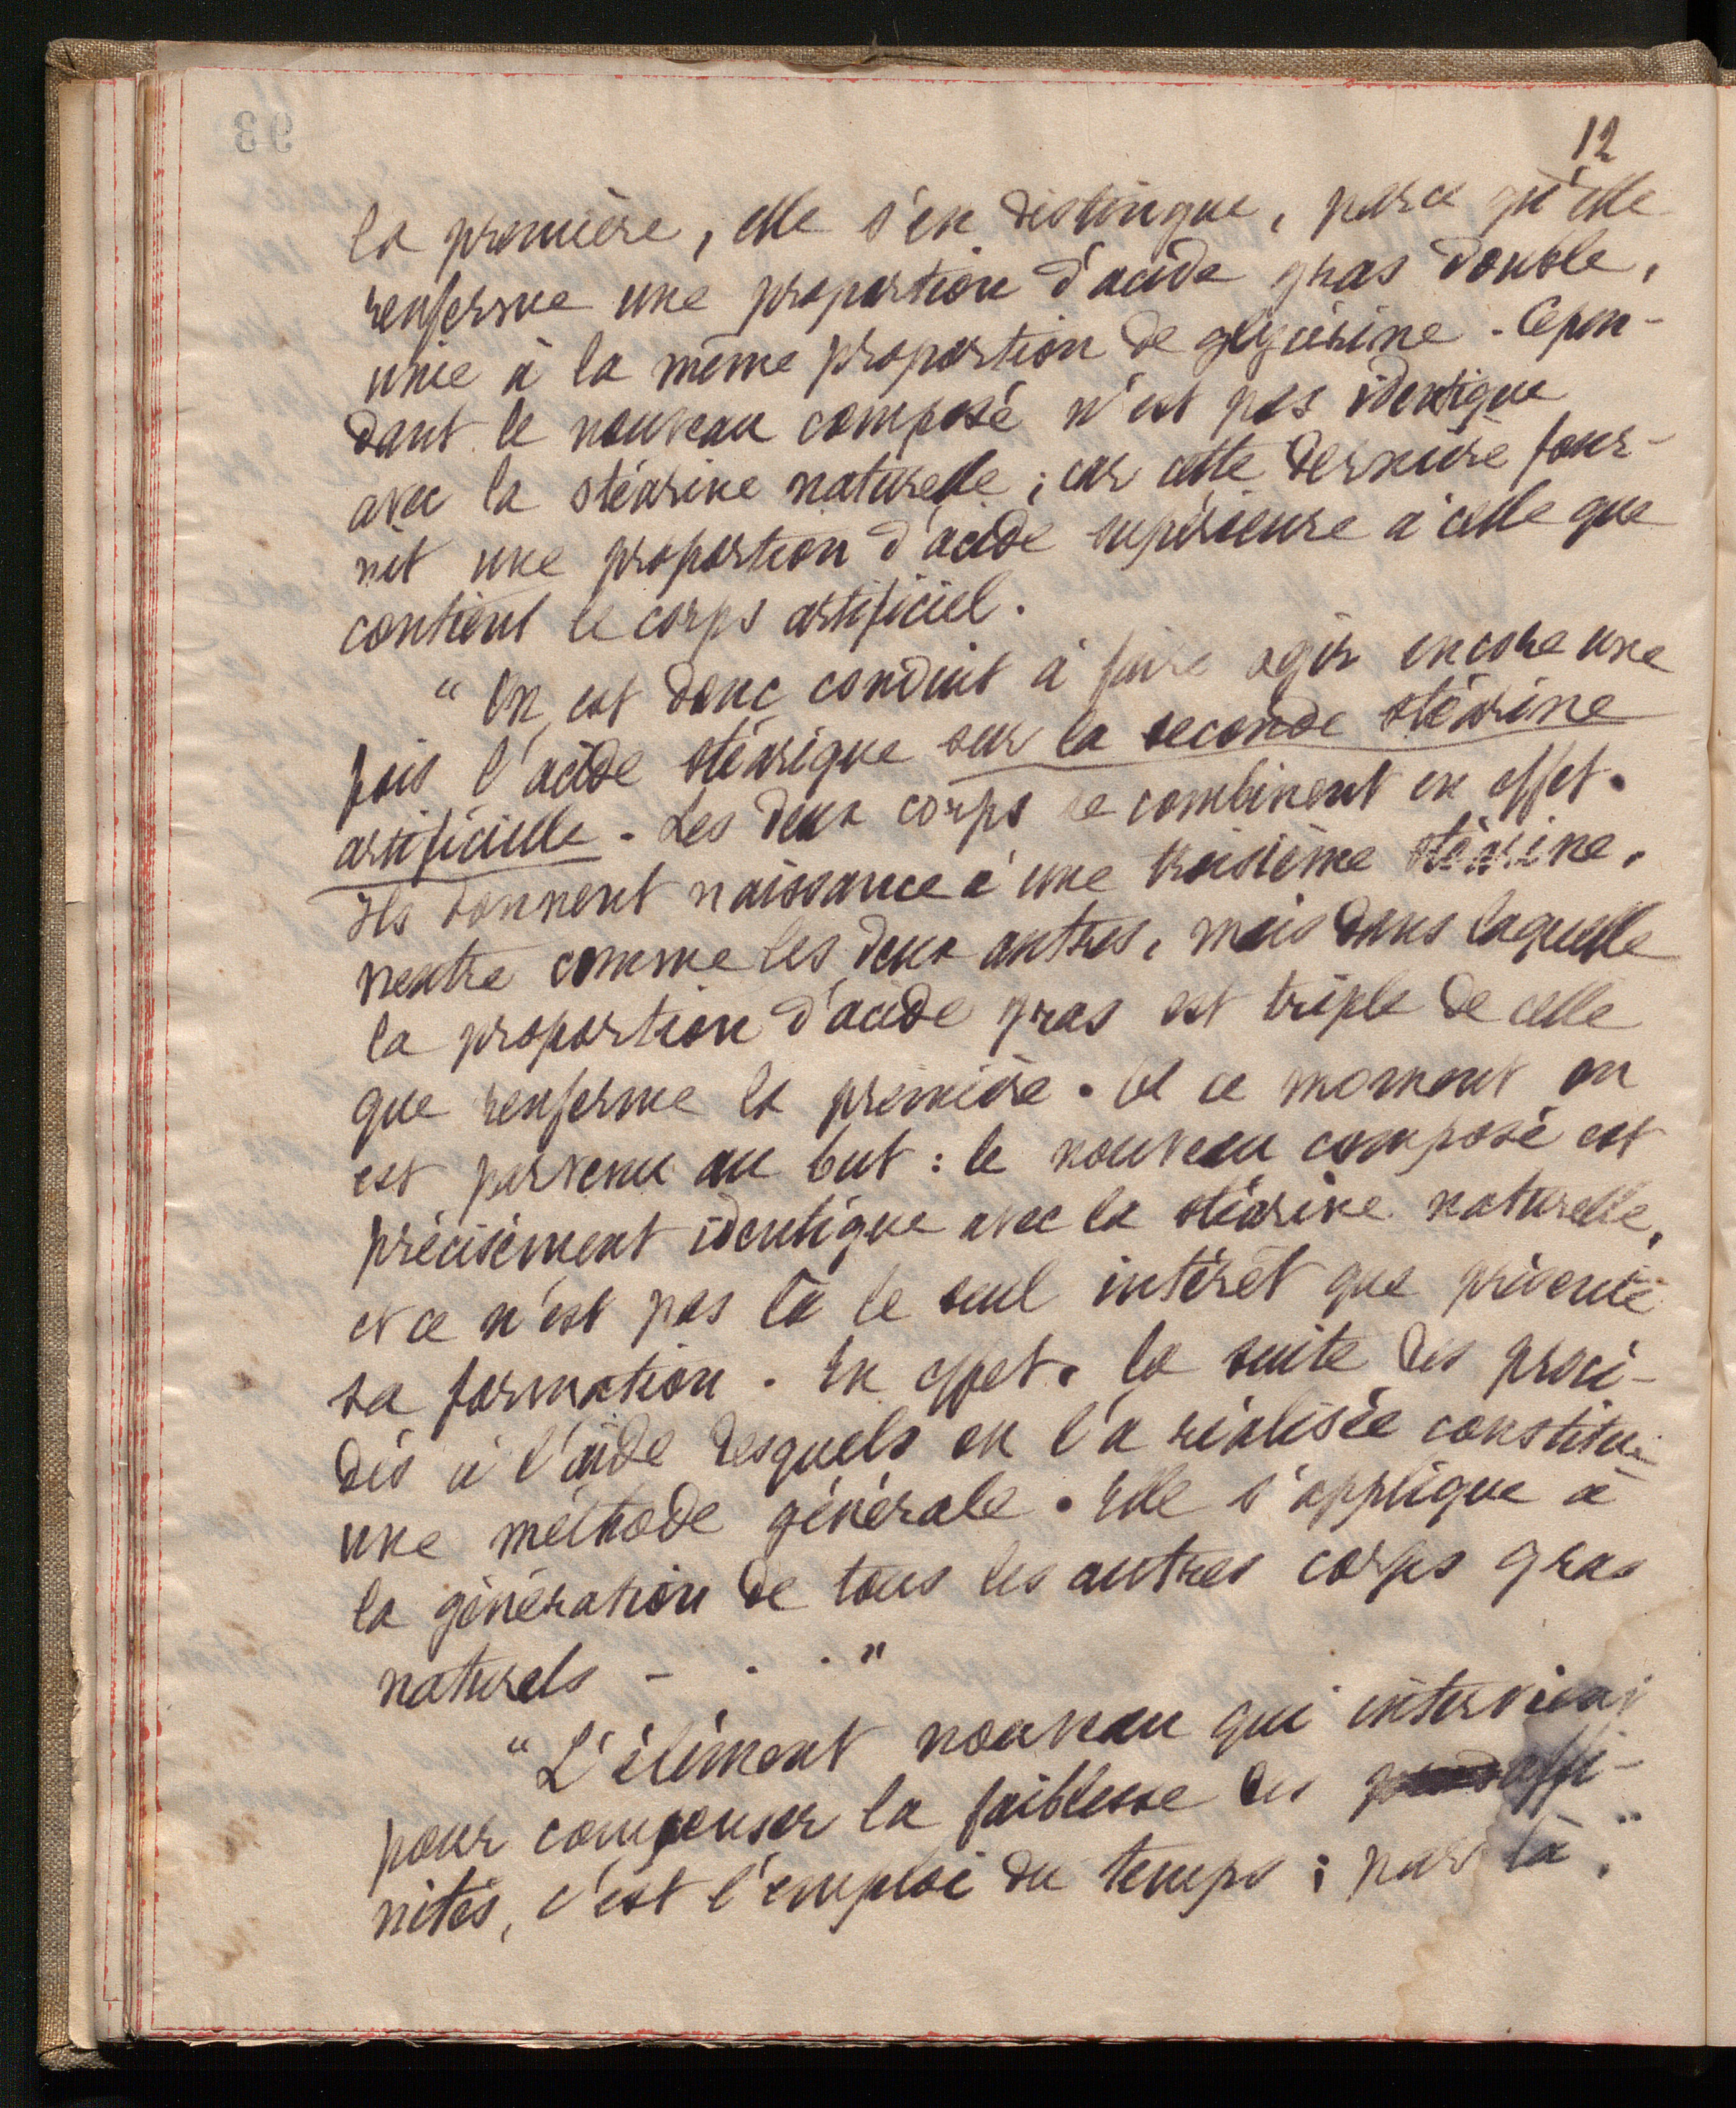 12
la première, elle s'en distingue, parce qu'elle
renferme une proportion d'acide gras double,
unie à la même proportion de glycérine. Cepen-
dant le nouveau composé n'est pas identique
avec la stéarine naturelle ; car cette dernière four-
nit une proportion d'acide supérieure à celle que
contient le corps artificiel.
"On est donc conduit à faire agir encore une
fois l'acide stéarique sur la seconde stéarine
artificielle. Les deux corps se combinent en effet.
Ils donnent naissance à une troisième stéarine,
neutre comme les deux autres, mais dans laquelle
la proportion d'acide gras est triple de celle
que renferme la première. A ce moment on
est parvenu au but : le nouveau composé est
précisément identique avec la stéarine naturelle,
et ce n'est pas là le seul intérêt que présente
sa formation. En effet, la suite des procé-
dés à l'aide desquels on l'a réalisée constitue
une méthode générale. Elle s'applique à
la génération de tous les autres corps gras
naturels - . . "
"L'élément nouveau qui intervient
pour compenser la faiblesse des affi-
nités, c'est l'emploi du temps ; par là "
93